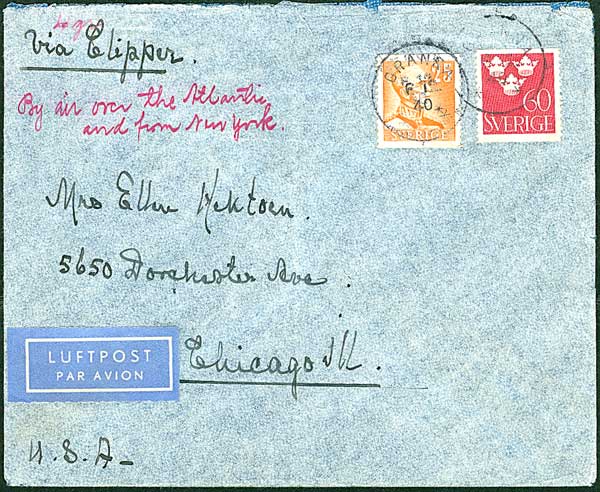 via Clipper.
By air over the Atlantic
and from New York.
25
SVERIGE
40
60
SVERIGE
Mrs Ellen Hektoen.
5650 Dorchester Ave.
Chicago Ill.
LUFTPOST
PAR AVION
U.S.A-